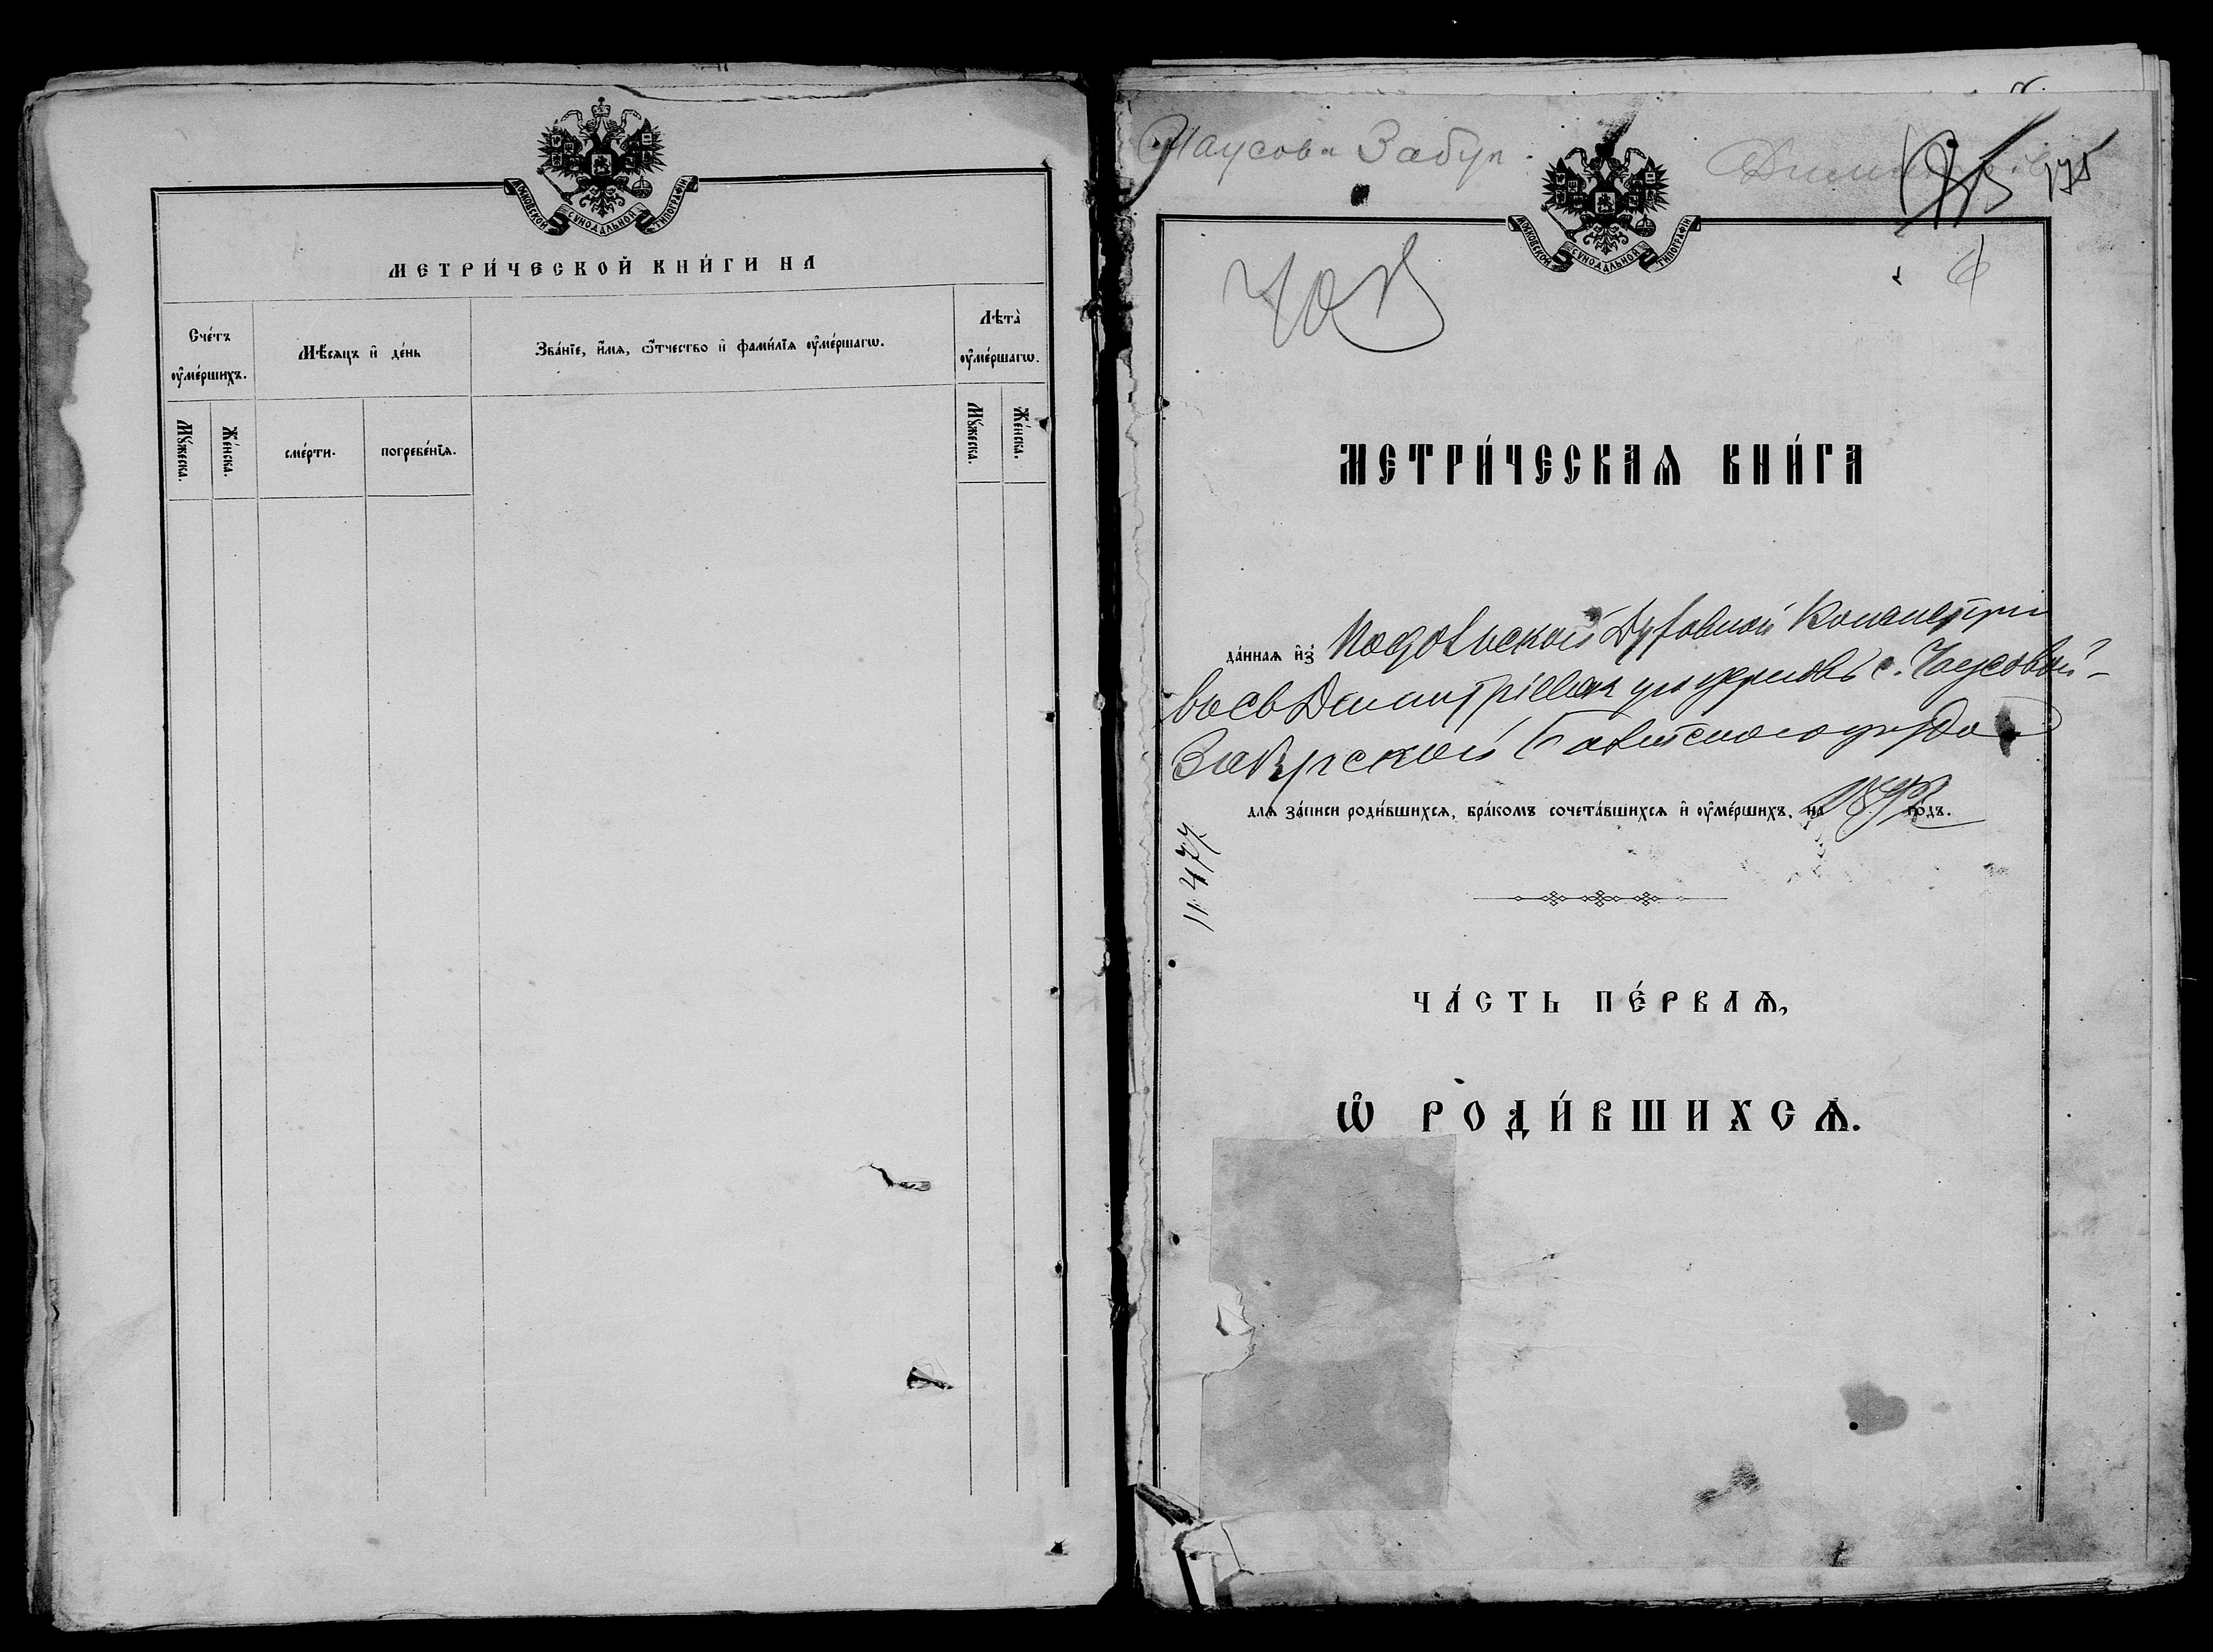 МОСКОВСКОЙ СѴНОДАЛЬНОЙ ТИПОГРАФІИ
МЕТРИ́ЧЕСКОЙ КНИ́ГИ НА
Сче́тъ ᲂу҆ме́ршихъ.
Мѣ́сяцъ и҆ де́нь
Зва́нїе, и҆́мѧ, ѻ҆́тчество и҆ фами́лїѧ ᲂу҆ме́ршагѡ.
Лѣта̀ ᲂу҆ме́ршагѡ.
Мꙋ́жеска.
Же́нска.
сме́рти.
погребе́нїѧ.
Мꙋ́жеска.
Же́нска.
Чаусова Забуг.
175
МОСКОВСКОЙ СѴНОДАЛЬНОЙ ТИПОГРАФІИ
МЕТРИ́ЧЕСКАѦ КНИ́ГА
да́ннаѧ и҆з̾ Подольской Духовной Консисторіи
во св Димитріевскую церковь с. Чаусовой
Забугской Балтскаго уѣзда
длѧ за́писи роди́вшихсѧ, бра́комъ сочета́вшихсѧ и҆ ᲂу҆ме́ршихъ, на го́дъ.
11477
ЧА́СТЬ ПЕ́РВАѦ,
Ѡ҆ РОДИ́ВШИХСѦ.